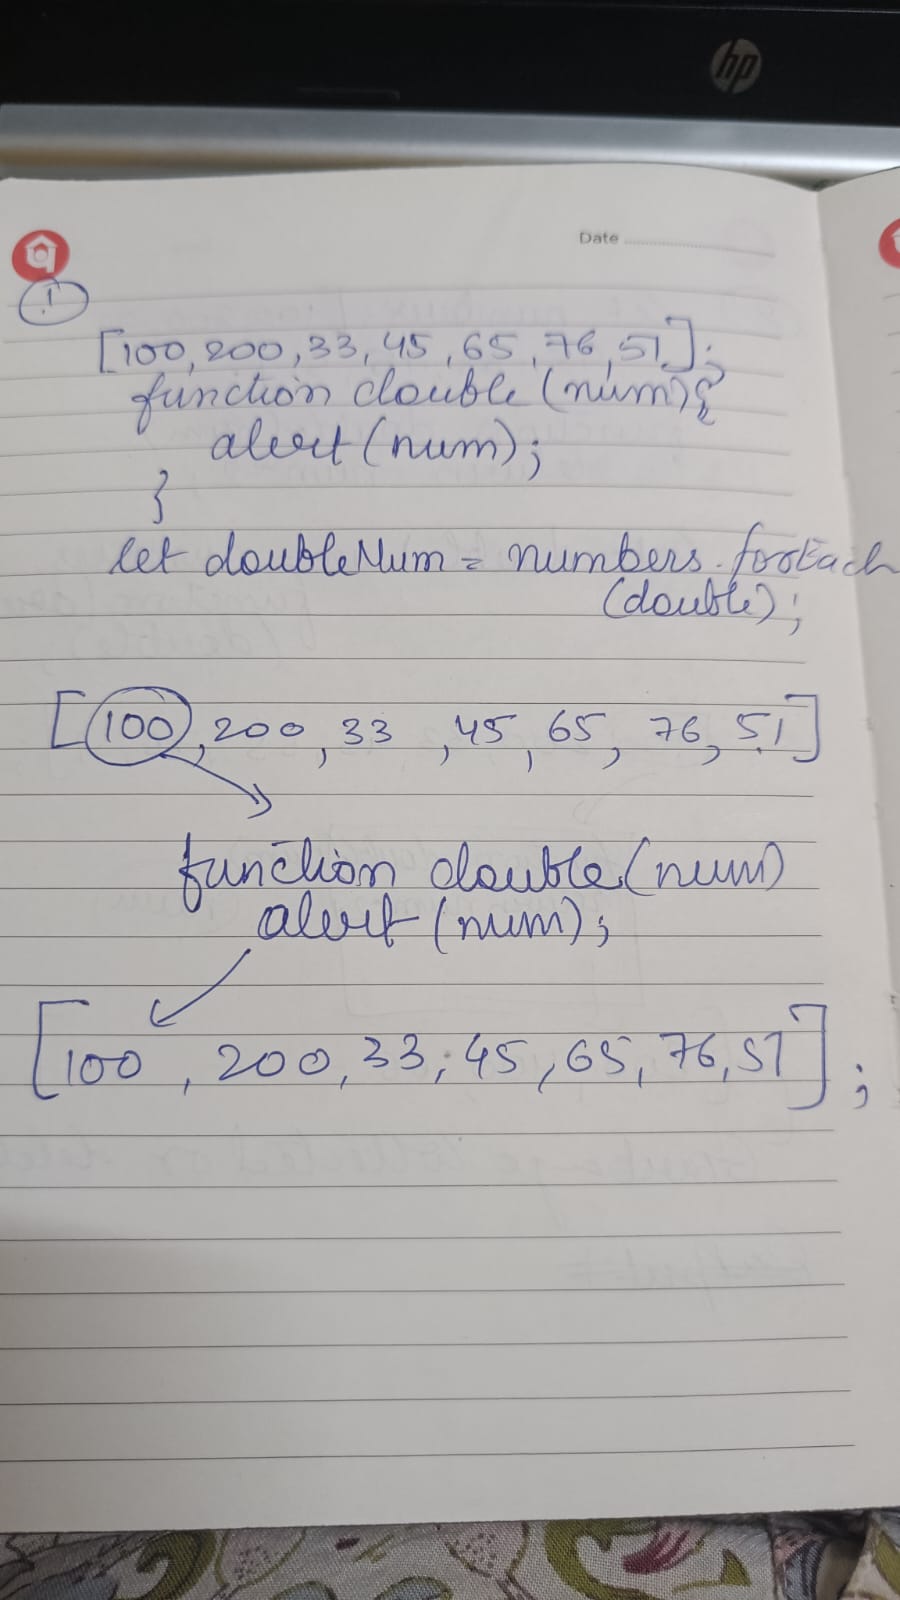 hp
Date
1
[100, 200, 33, 45, 65, 76, 51];
function double (num){
alert (num);
}
let doubleNum = numbers.forEach
(double);
[100, 200, 33, 45, 65, 76, 51]
function double (num)
alert (num);
[100, 200, 33, 45, 65, 76, 51];